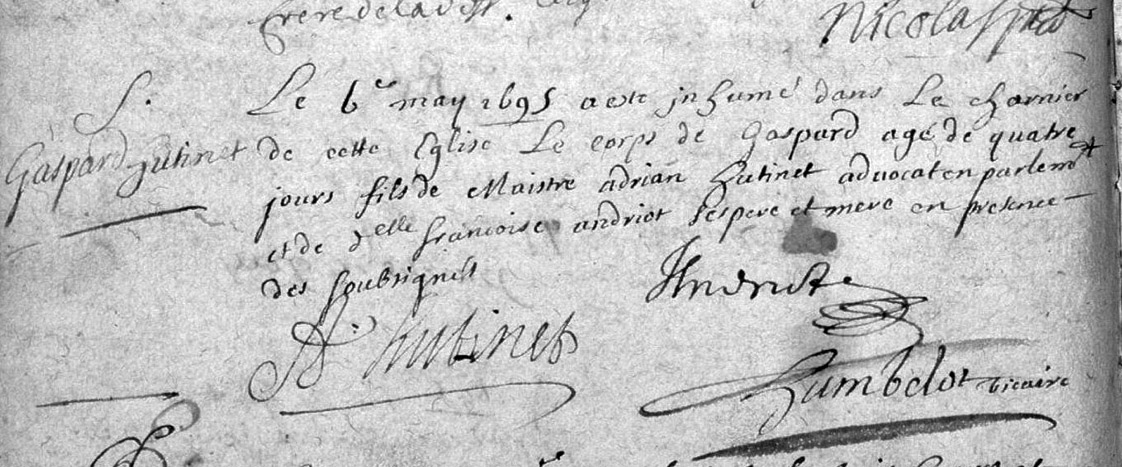 frere de la deff.
Nicolas
S.
Gaspard hutinet
Le 6e may 1695 a este inhumé dans Le charnier
de cette Eglise Le corps de Gaspard agé de quatre
jours fils de Maistre adrian hutinet advocat en parlemt
et de delle francoise andriot ses pere et mere en presence
des soubsignés
Andriot
A. hutinet
humbelot vicaire